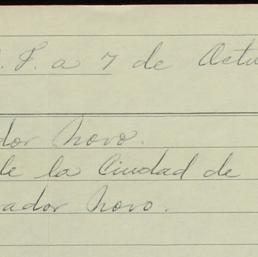 . F. a 7 de Octu
dor Novo.
de la Ciudad de
ador Novo.